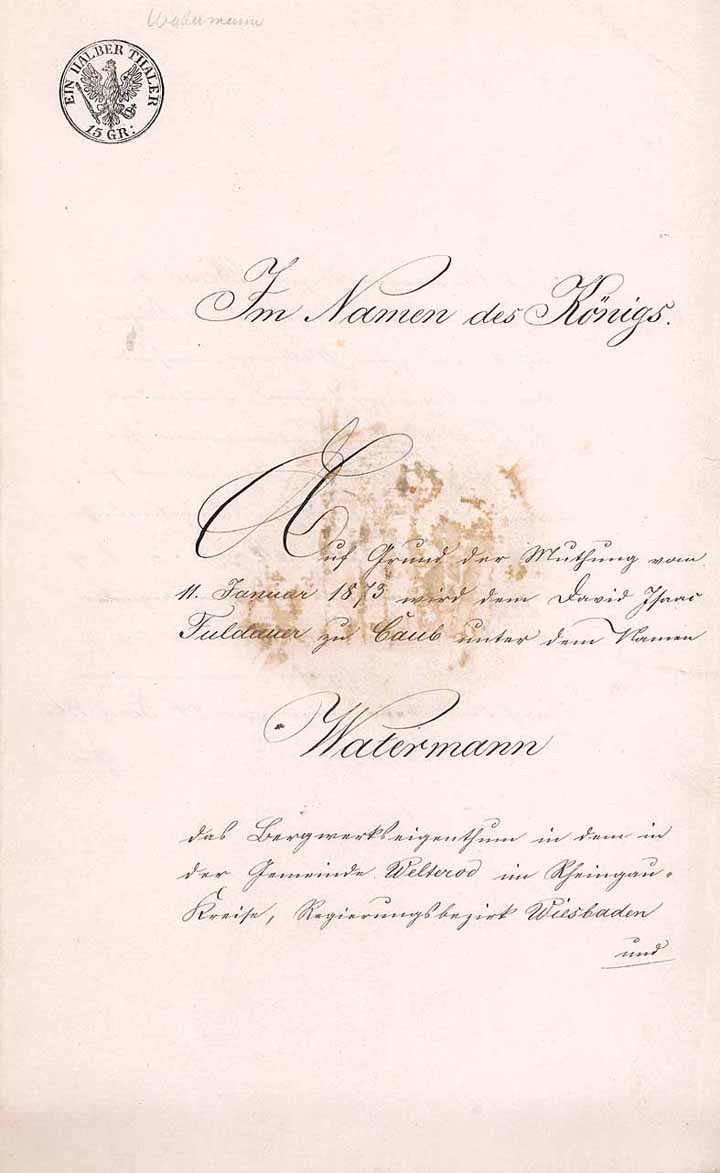 Watermann
EIN HALBER THALER
15 GR:
Im Namen des Königs.
Auf Grund der Muthung vom
11. Januar 1873 wird dem David Isaac
Fuldauer zu Caub unter dem Namen
Watermann
das Bergwerkseigenthum in dem in
der Gemeinde Welterod im Rheingau-
Kreise, Regierungsbezirk Wiesbaden
und